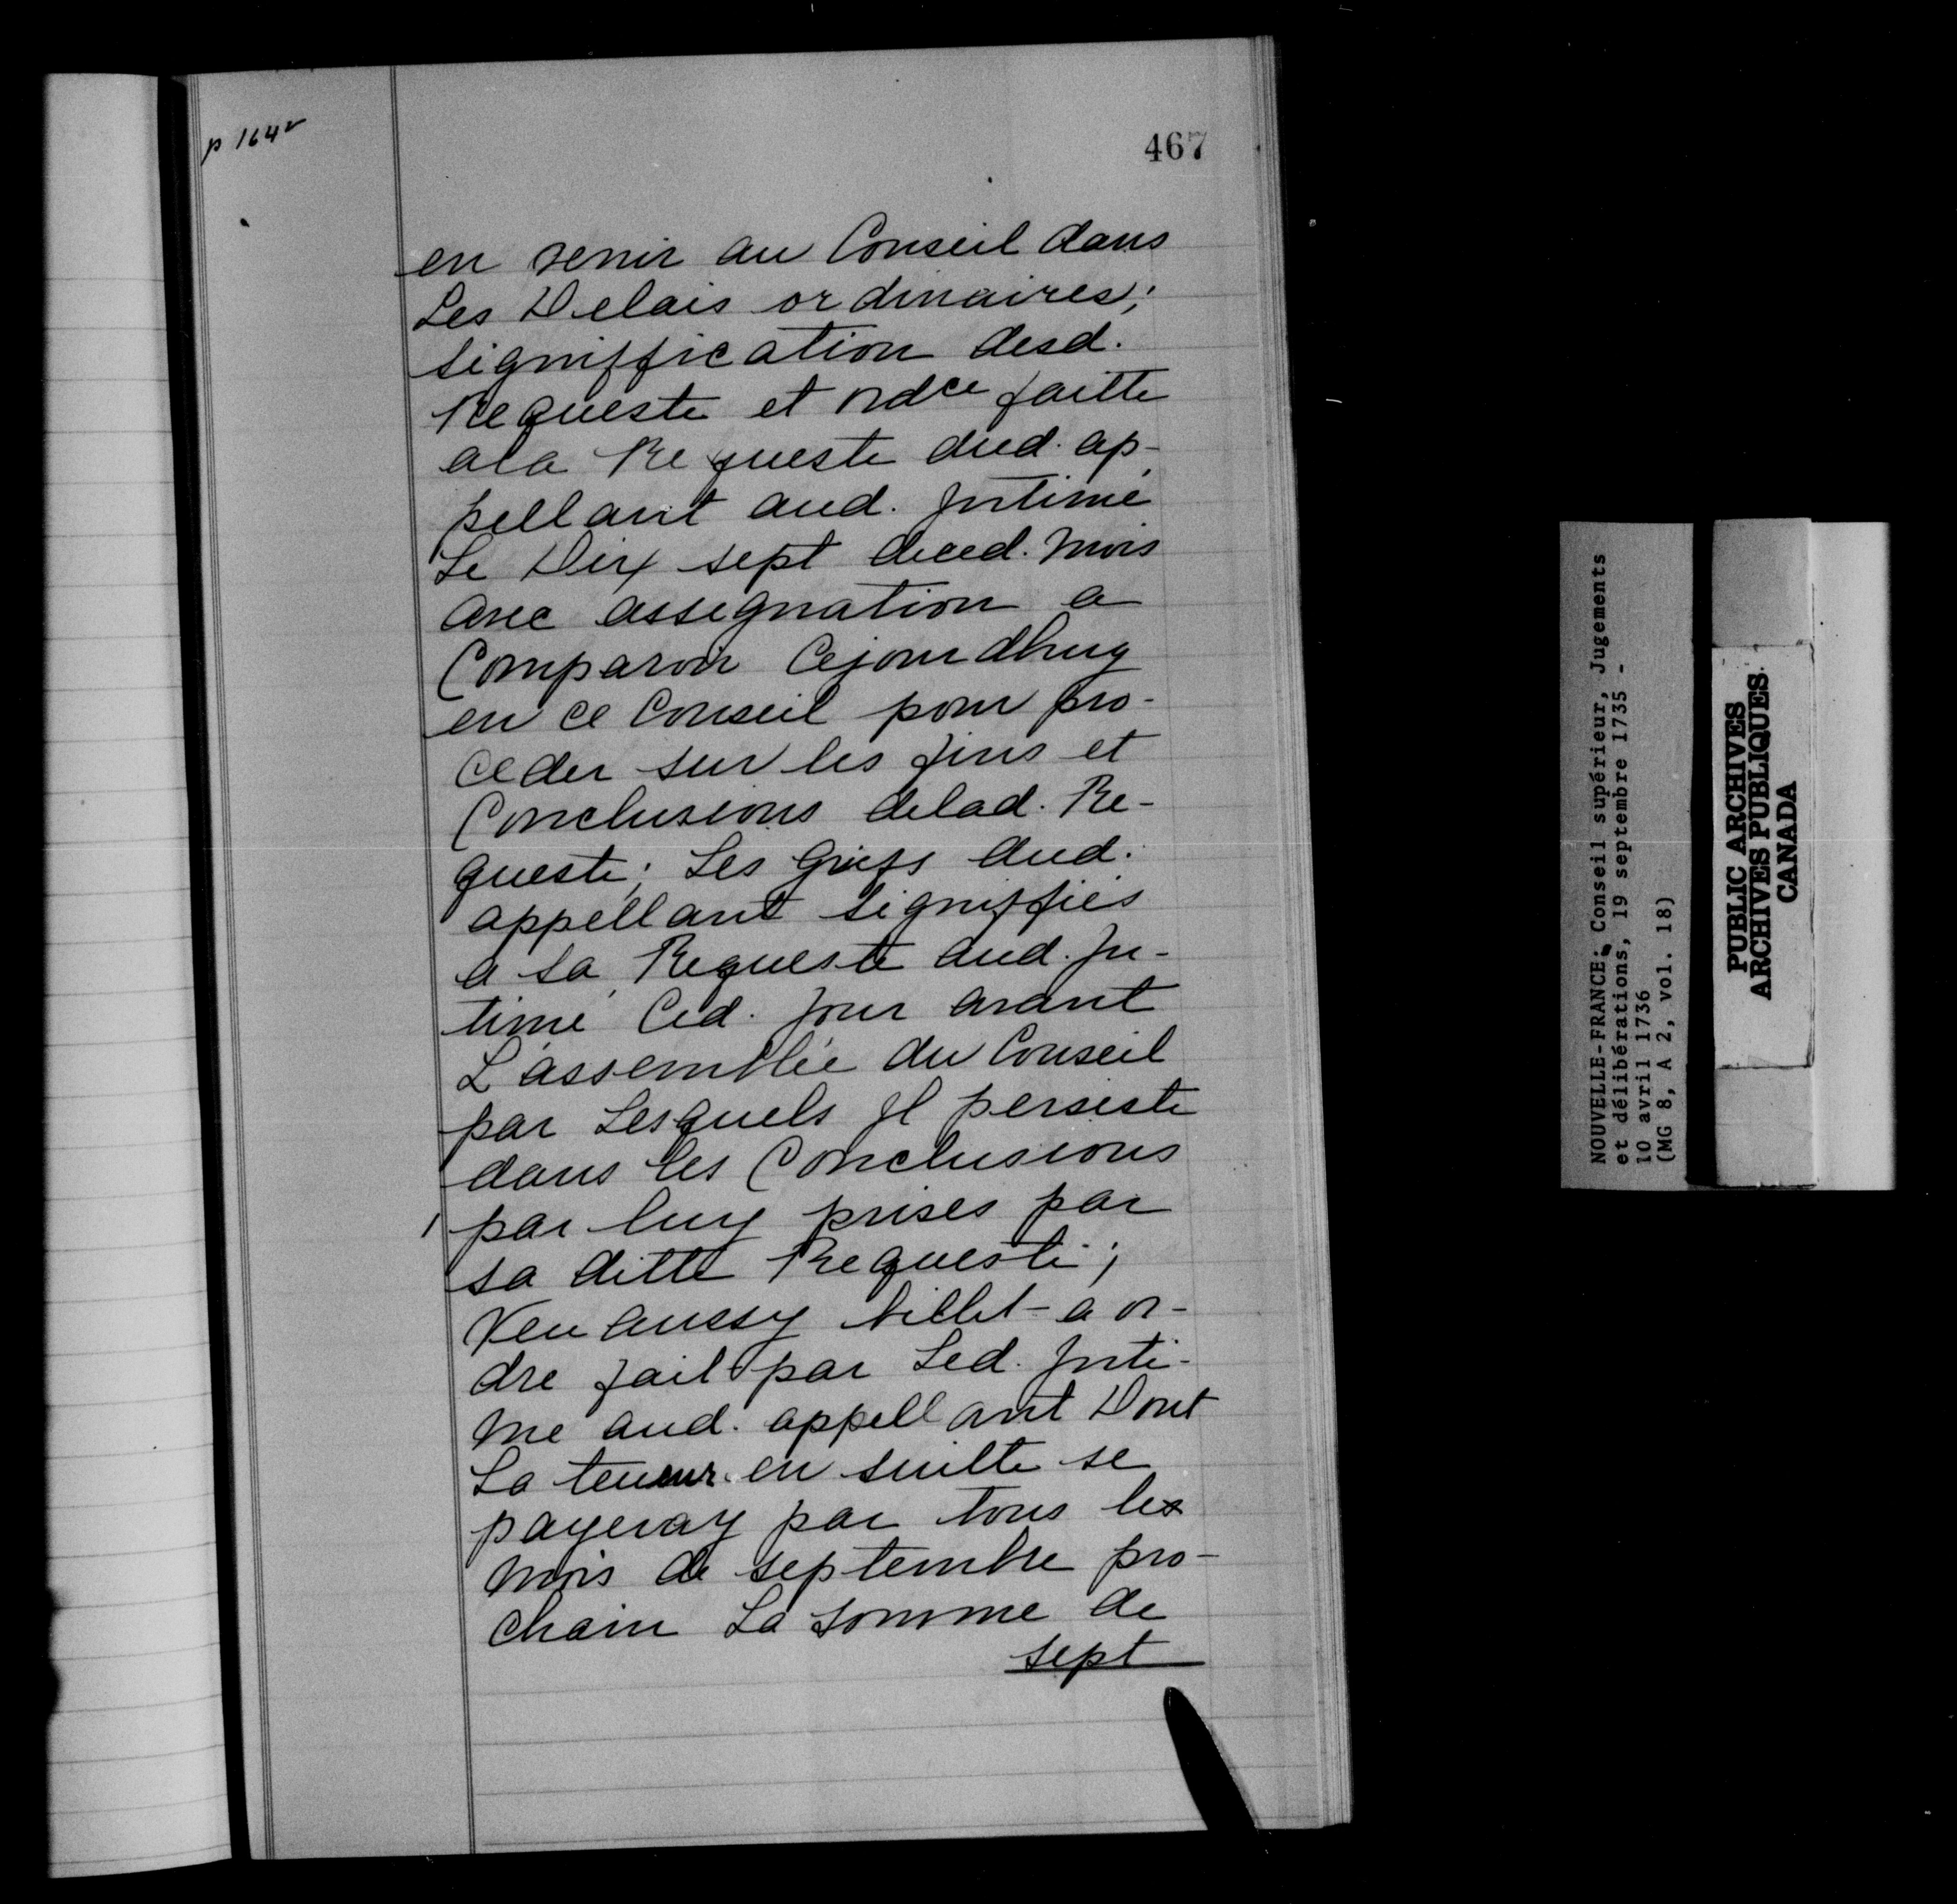 p 164v
467
en venir au Conseil dans
Les Delais ordinaires;
signiffication desd.
Requeste et ordce faitte
ala Requeste dud. ap-
pellant aud. Jntimé
Le Dix sept duud. mois
avec assignation a
Comparoir Cejourdhuy
en ce Conseil pour pro-
ceder sur les fins et
Conclusions delad. Re-
queste; Les Griefs dud.
appellant signiffiés
a sa Requeste aud. Jn-
timé Ced. jour avant
L'assemblée du Conseil
par Lesquels Jl persiste
dans les Conclusions
par luy prises par
sa ditte Requeste;
Veu aussy billet a or-
dre fait par Led. Jnti-
mé aud. appellant Dont
La teneur en suitte se
payeray par tous les
mois de septembre pro-
chain La somme de
sept
NOUVELLE-FRANCE: Conseil supérieur, Jugements
et délibérations, 19 septembre 1735 -
10 avril 1736
(MG 8, A 2, vol. 18)
PUBLIC ARCHIVES
ARCHIVES PUBLIQUES
CANADA